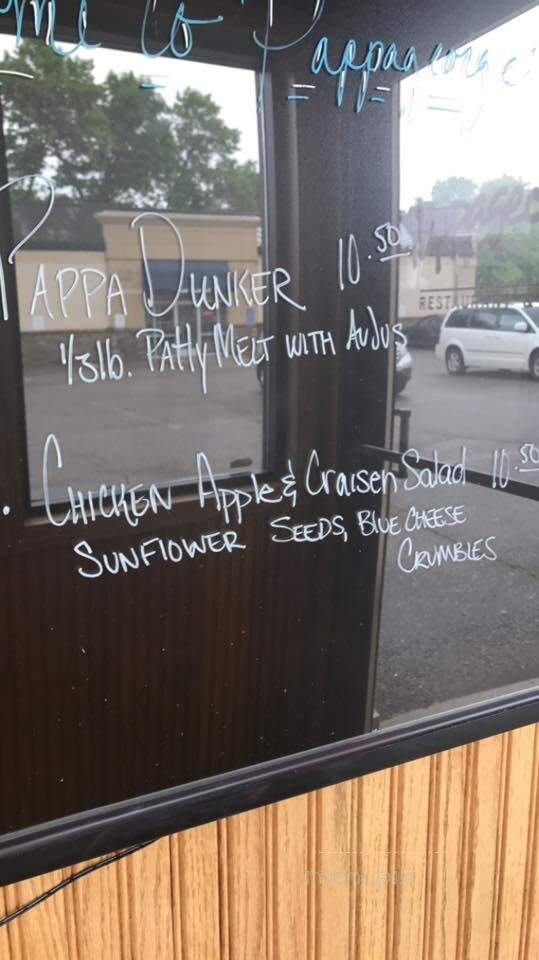 to Pappageorge
PAPPA DUNKER 10.50
1/3lb. PAttY MELT WITH AU JUS
RESTAURANT
. CHICKEN Apple & Craisen Salad 10.50
SUNFlOWER SEEDS, BLUE CHEESE
CRUMBLES